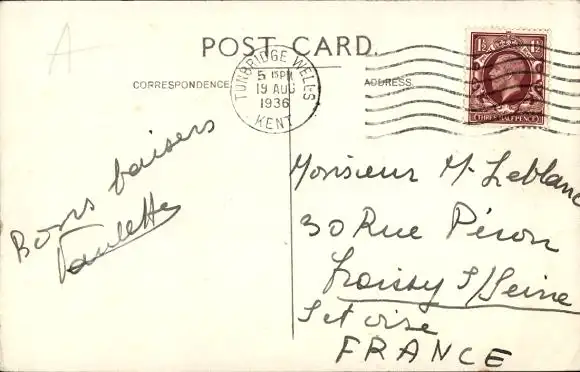 A
POST CARD.
CORRESPONDENCE
ADDRESS.
TUNBRIDGE WELLS
5 15 PM
19 AUG
1936
KENT
1½ 1½
THREE HALFPENCE
Bons baisers
Paulette
Monsieur M. Leblanc
30 Rue Péron
Croissy s/Seine
S et Oise
FRANCE